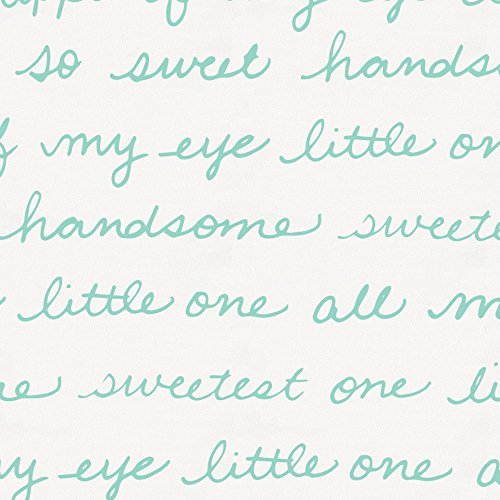 of my eye
so sweet handso
of my eye little on
handsome sweete
little one all m
ne sweetest one li
my eye little one a